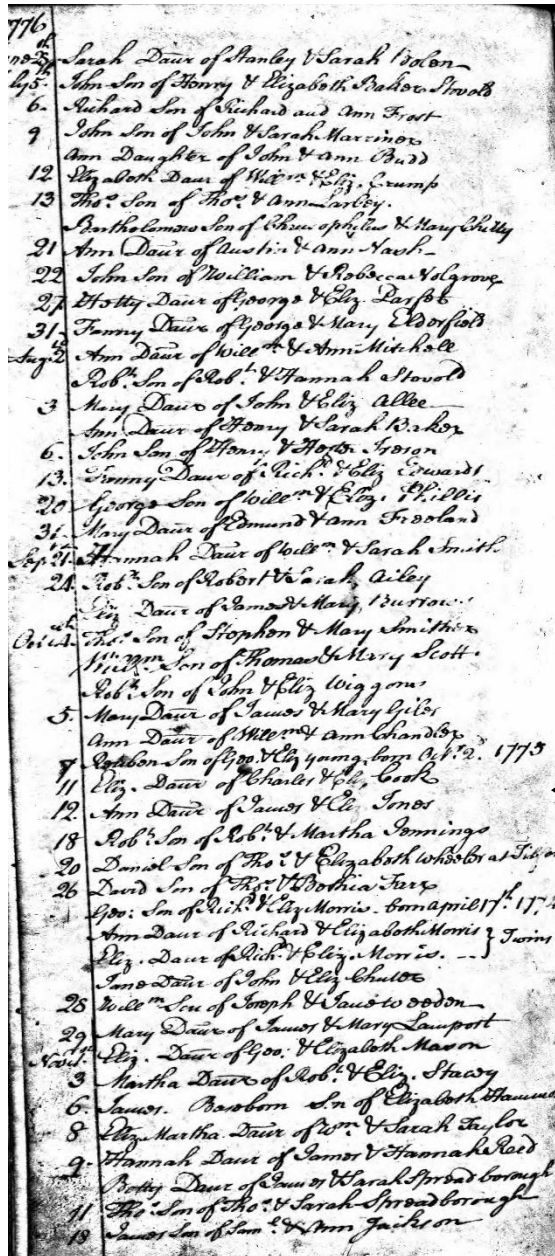 1776
June 23 Sarah Daur of Stanley & Sarah Bolen
July 5 John Son of Henry & Elizabeth Baker Stovold
6 Richard Son of Richard and Ann Frost
9 John Son of John & Sarah Marriner
Ann Daughter of John & Ann Budd
12 Elizabeth Daur of Willm & Eliz. Crump
13 Thos Son of Thos & Ann Larbey
Bartholomew Son of & Mary Chitty
21 Ann Daur of Austin & Ann Nash
22 John Son of William & Rebecca Volgrove
27 Hetty Daur of George & Eliz. Parfot
31 Fanny Daur of George & Mary Elderfield
Aug. 2 Ann Daur of Willm & Ann Mitchell
Robt Son of Robt & Hannah Stovold
3 Mary Daur of John & Eliz Allee
Ann Daur of Henry & Sarah Baker
6 John Son of Henry & Hester Ireson
13 Fanny Daur of Richd & Eliz Edwards
20 George Son of Willm & Eliz. Phillis
31 Mary Daur of Edmund & Ann Freeland
Sep. 21 Hannah Daur of Willm & Sarah Smith
24 Robt Son of Robert & Sarah Ailey
Eliz Daur of James & Mary Burrow
Oct 4 Thos Son of Stephen & Mary Smither
Willm Son of Thomas & Mary Scott
Robt Son of John & Eliz Wiggons
5 Mary Daur of James & Mary Giles
Ann Daur of Willm & Ann Chandler
7 Reuben Son of Geo. & Eliz young born Octr 2d 1775
11 Eliz. Daur of Charles & Eliz Cook
12 Ann Daur of James & Eliz Jones
18 Robt Son of Robt & Martha Jennings
20 Daniel Son of Thos & Elizabeth Wheeler at
26 David Son of Thos & Bethia Farr
Geo: Son of Richd & Eliz Morris born April 17th
Ann Daur of Richard & Elizabeth Morris } Twins
Eliz. Daur of Richd & Eliz. Morris
Jane Daur of John & Eliz Chuter
28 Willm Son of Joseph & Jane Weeden
29 Mary Daur of James & Mary Lamport
Novr 1st Eliz. Daur of Geo: & Elizabeth Mason
3 Martha Daur of Robt & Eliz. Stacey
6 James. Baseborn Son of Elizabeth
8 Eliz. Martha Daur of Wm & Sarah Taylor
9 Hannah Daur of James & Hannah Reed
Betty Daur of James & Sarah Spreadborough
11 Thos Son of Thos & Sarah Spreadborough
18 James Son of Saml & Ann Jackson